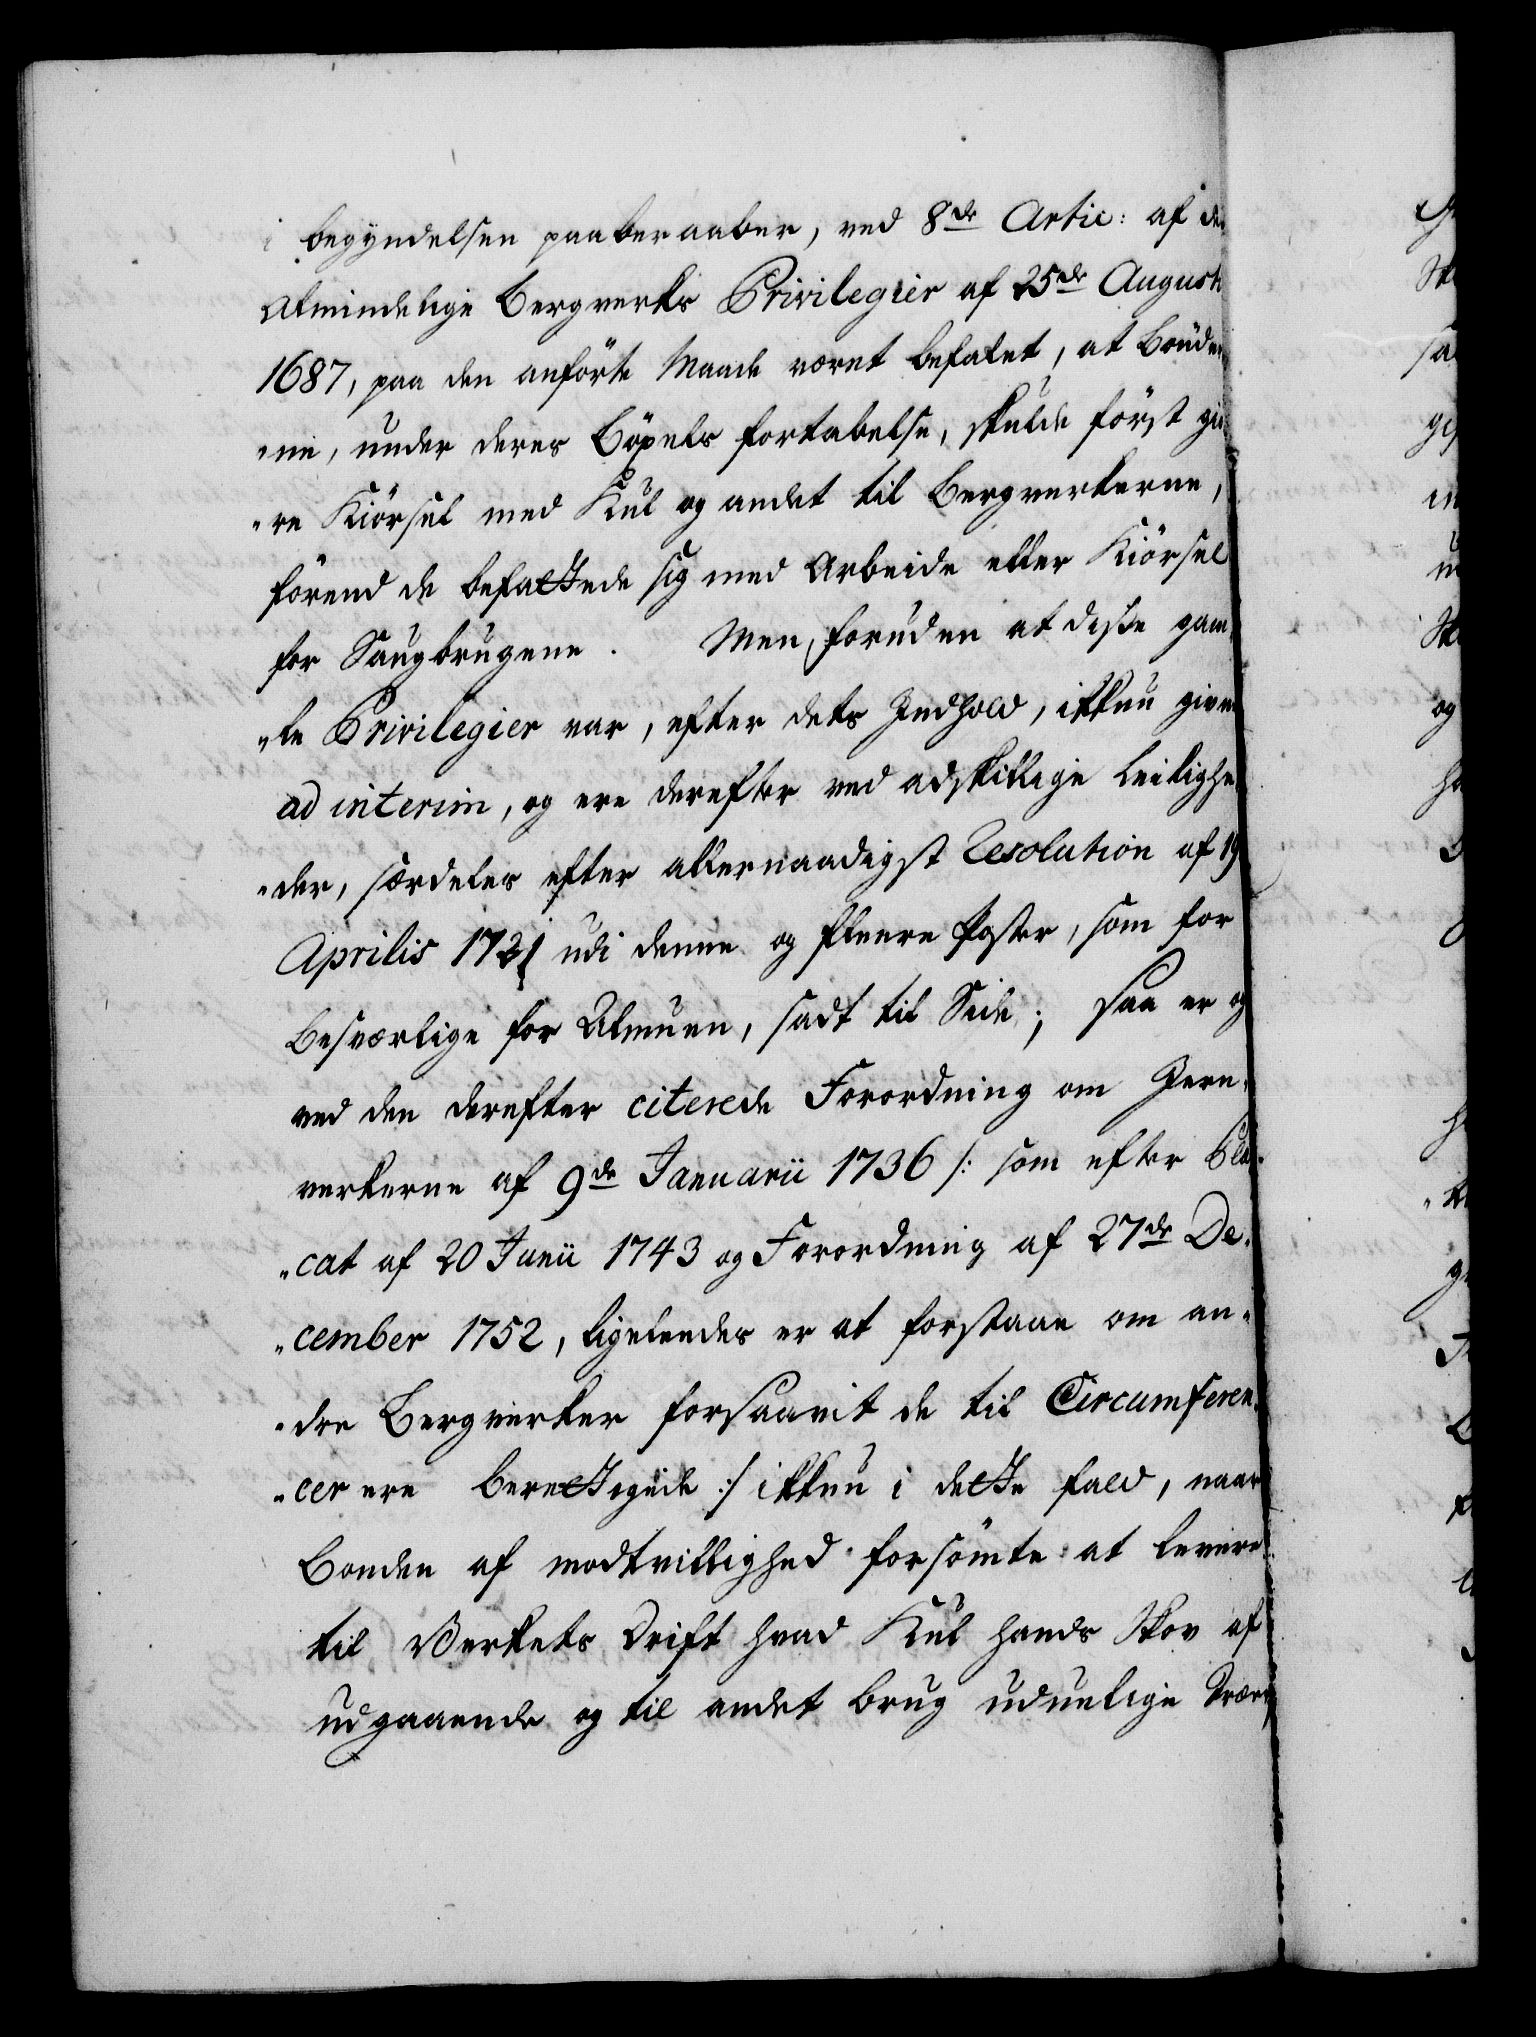 i begyndelsen paaberaaber, ved 8de Artic: af de
Almindelige Bergverks Privilegier af 25de Augusti
1687, paa den anförte Maade været befalet, at Bönder
"ne, under deres Böxels fortabelse, skulde först giö
"re Kiörsel med Kul og andet til Bergverkerne,
förend de befattede sig med Arbeide eller Kiörsel
for Saugbrugene. Men, foruden at disse gam
"le Privilegier var, efter dets Indhold, ikkun given
ad interim, og ere derefter ved adskillige Leilighe
"der, særdeles efter allernaadigst Resolution af 19
Aprilis 1721 udi denne og fleere Poster, som for
besværlige for Almuen, sadt til Side; saa er og
ved den derefter citerede Forordning om Jern-
verkerne af 9de Januarii 1736 /: som efter Pla-
"cat af 20 Junii 1743 og Forordning af 27de De-
"cember 1752, ligeledes er at forstaae om an-
"dre Bergverker forsaavit de til Circumferen-
"cer ere berettigede :/ ikkun i dette fald, naar
Bonden af modtvillighed forsömte at levere
til Verkets Drift hvad Kul hands Skov af
udgaaende og til andet brug uduelige Træer